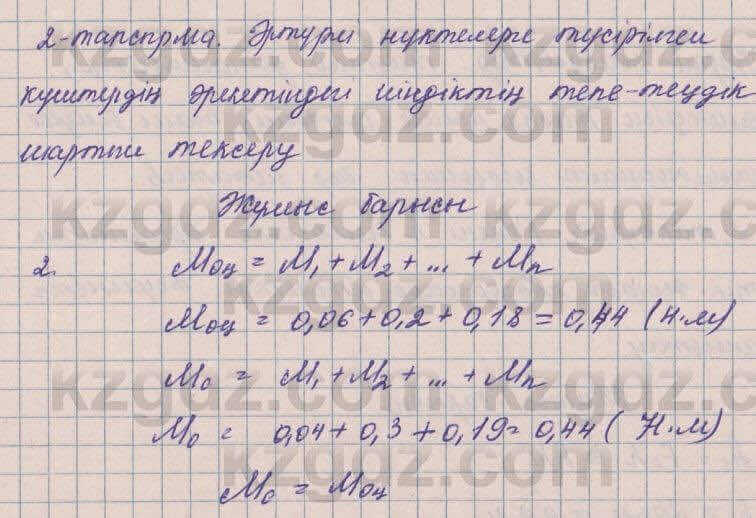 2-тапсырма. Әртүрлі нүктелерге түсірілген
күштердің әрекетіндегі иіндіктің тепе-теңдік
шартын тексеру
Жұмыс барысы
2. Mоц = M₁ + M₂ + ... + Mn
Mоц = 0,06 + 0,2 + 0,18 = 0,44 (Н·м)
M₀ = M₁ + M₂ + ... + Mn
M₀ = 0,04 + 0,3 + 0,19 = 0,44 (Н·м)
M₀ = Mоц
kzgdz.com